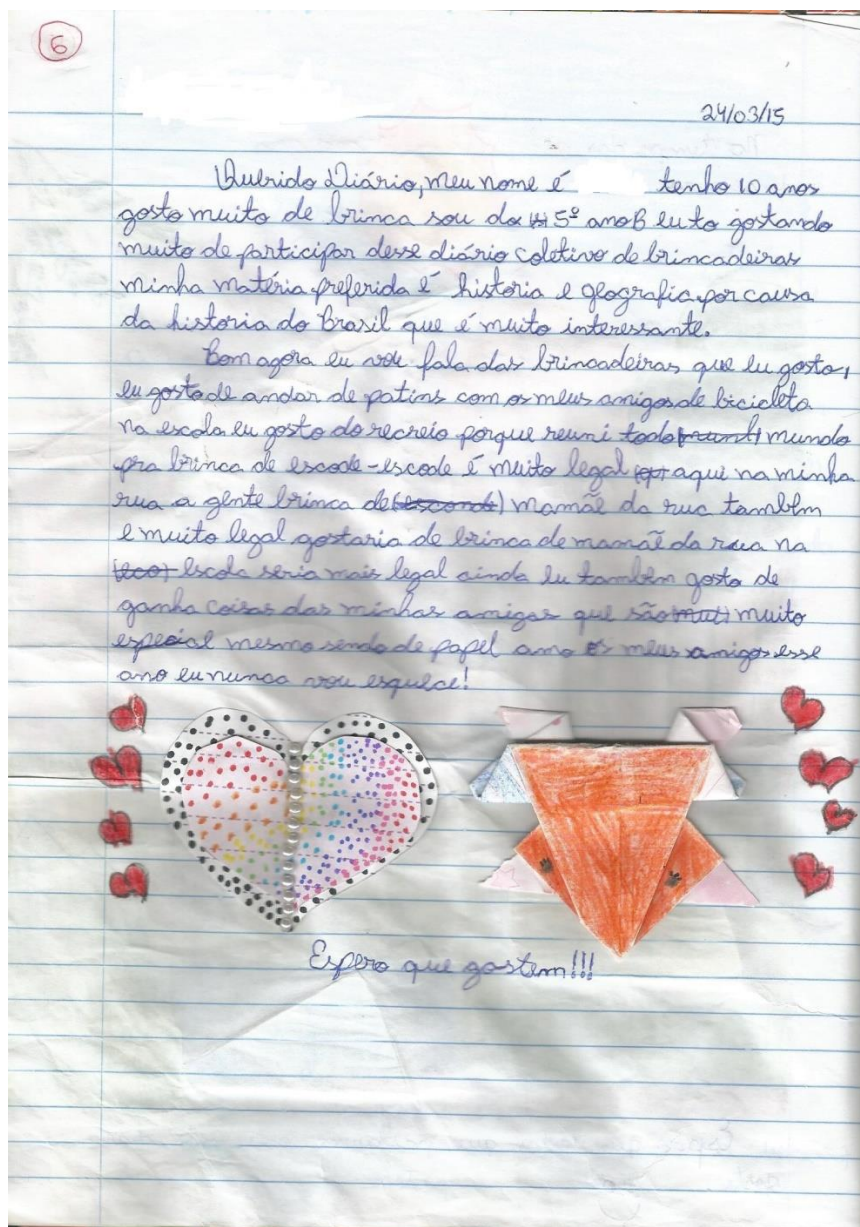 6
24/03/15
Querido Diário, meu nome é tenho 10 anos
gosto muito de brinca sou do 5º ano B eu to gostando
muito de participar desse diário coletivo de brincadeiras
minha matéria preferida é historia e geografia por causa
da historia do Brasil que é muito interessante.
Bom agora eu vou fala das brincadeiras que eu gosto,
eu gosto de andar de patins com os meus amigos de bicicleta
na escola eu gosto do recreio porque reuni todo mundo
pra brinca de escode-escode é muito legal aqui na minha
rua a gente brinca de (esconde) mamãe da rua também
e muito legal gostaria de brinca de mamãe da rua na
(eco) escola seria mais legal ainda eu também gosto de
ganha coisas das minhas amigas que são muito
especial mesmo sendo de papel amo os meus amigos esse
ano eu nunca vou esquece!
Espero que gostem!!!